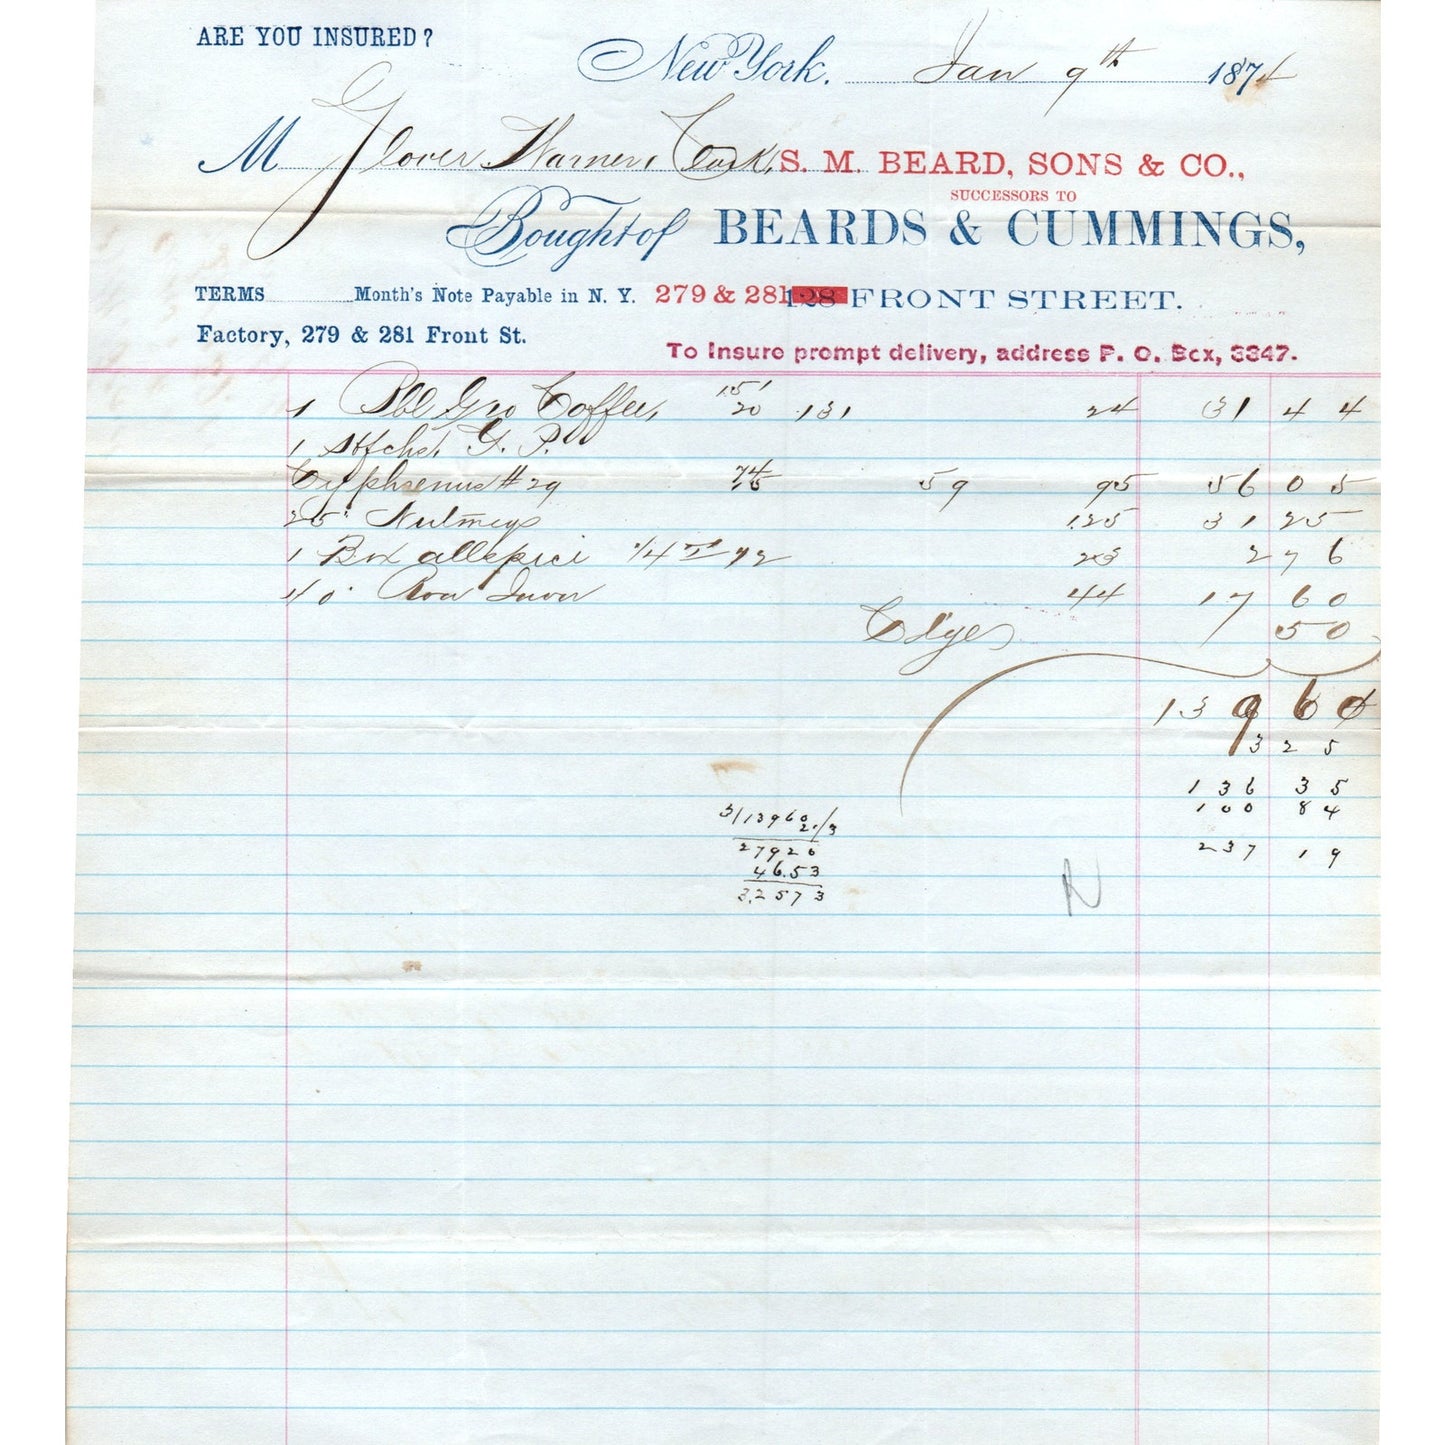 ARE YOU INSURED?
New York. Jan 9th 1874
M Glover Warner, S. M. BEARD, SONS & CO.,
SUCCESSORS TO
Bought of BEARDS & CUMMINGS,
TERMS Month's Note Payable in N. Y. 279 & 281 128 FRONT STREET.
Factory, 279 & 281 Front St.
To Insure prompt delivery, address P. O. Box, 3347.
1 Bbl Gro Coffee, 151 20 131 24 31 44
1 G. P.
#29 74 15 59 95 56 05
25 Nutmegs 125 31 25
1 Box allspice 1/4 12 23 2 76
40 44 17 60
Ctge 50
139 60
3 25
136 35
100 84
237 19
3/13960 2/3
27920
46.53
3.2573
N